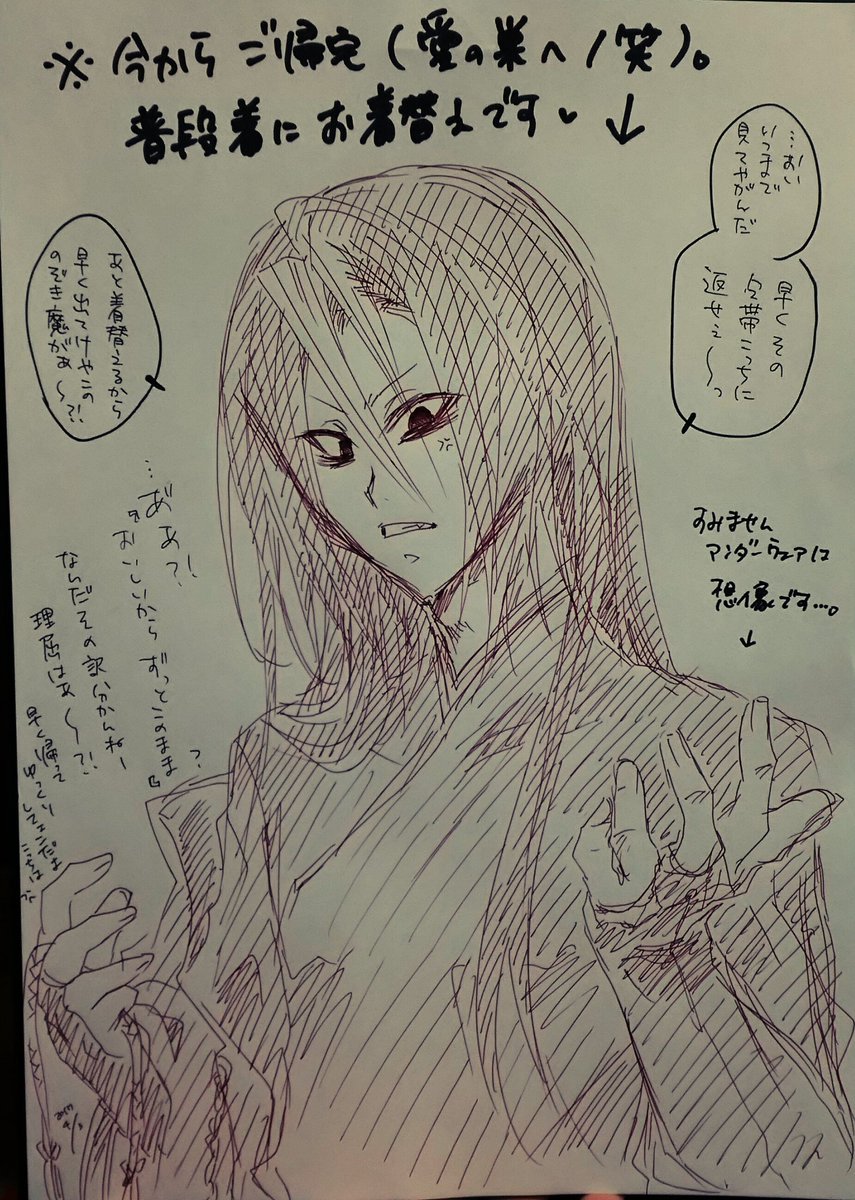 ※ 今から ご帰宅(愛の巣へ/笑)。
普段着に お着替えです♥ ↓
…おい
いつまで
見てやがんだ
早くその
包帯こっちに
返せぇ〜っ
あと着替えるから
早く出てけやこの
のぞき魔がぁ〜?!
すみません
アンダーウェアは
想像です…。
↓
…あ゛あ?!
おいしいから ずっとこのまま?
なんだその訳分かんねー
理屈はぁ〜?!
早く帰って
ゆっくり
してェんだよ
こっちは